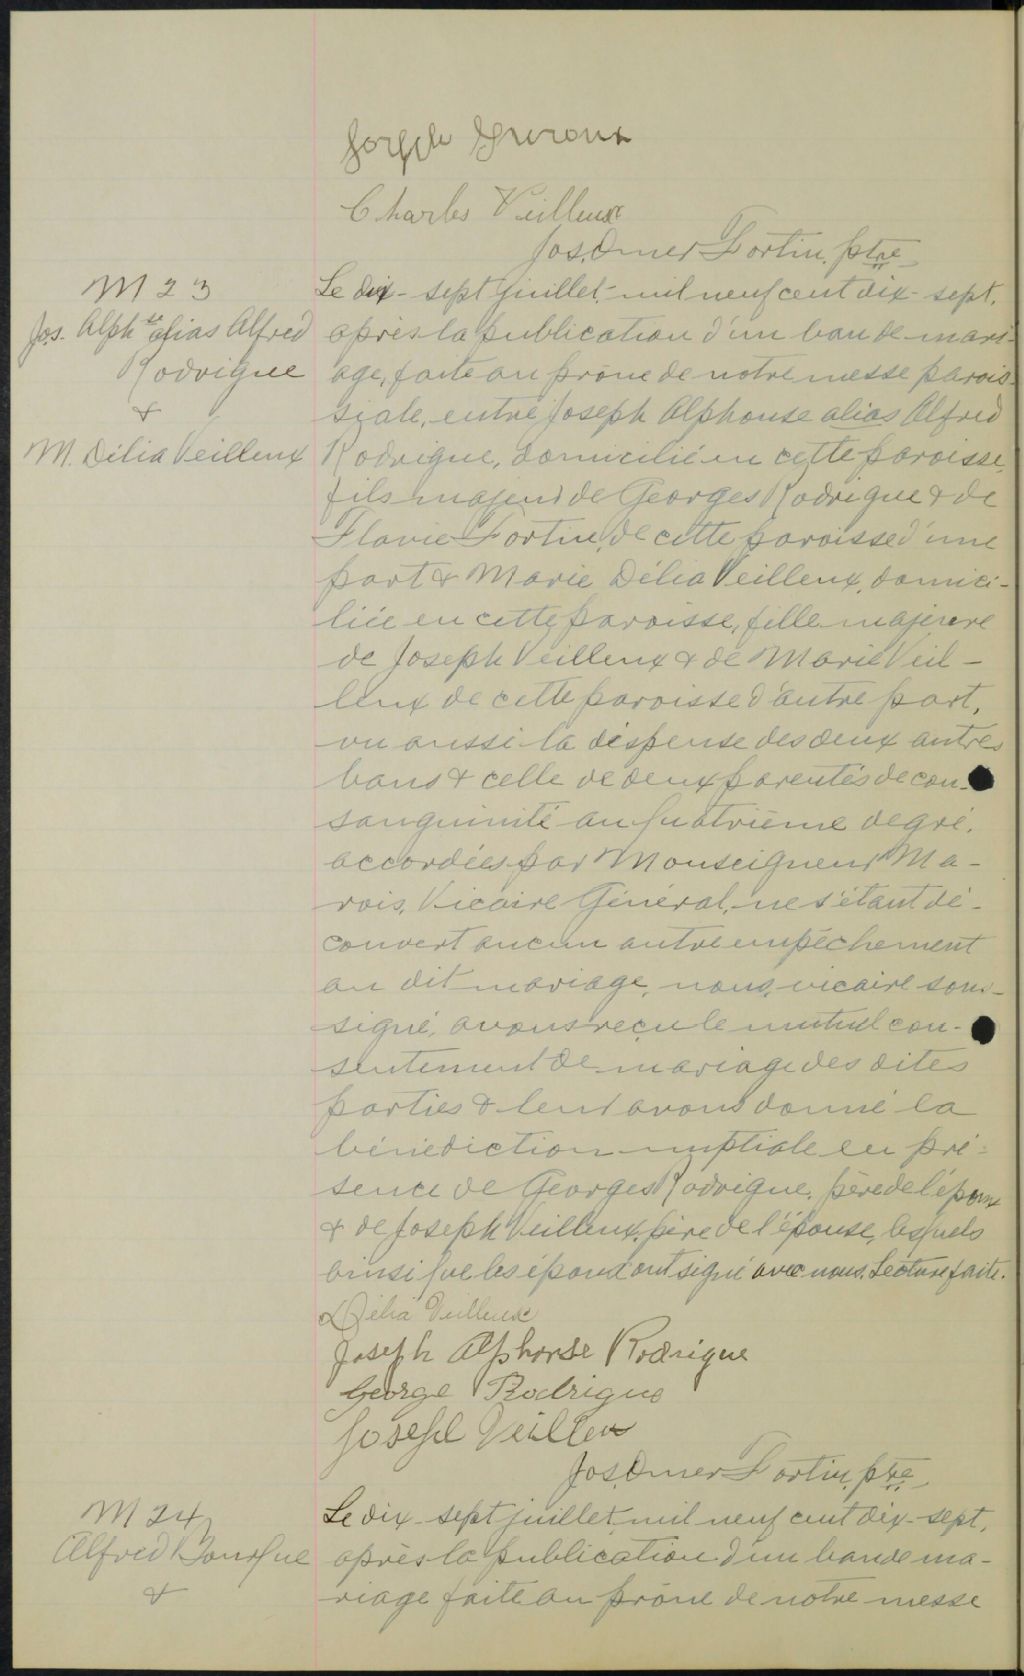 Joseph Giroux
Charles Veilleux
Jos. Omer Fortin, ptre
M 23
Jos. Alphse alias Alfred
Rodrigue
&
M. Délia Veilleux
Le dix-sept juillet, mil neuf cent dix-sept,
après la publication d'un ban de mari-
age, faite au prône de notre messe parois-
siale, entre Joseph Alphonse alias Alfred
Rodrigue, domicilié en cette paroisse,
fils majeur de Georges Rodrigue & de
Flavie Fortin, de cette paroisse d'une
part & Marie Délia Veilleux, domici-
liée en cette paroisse, fille majeure
de Joseph Veilleux & de Marie Veil-
leux de cette paroisse d'autre part,
vu aussi la dispense des deux autres
bans & celle de deux parentés de con-
sanguinité au quatrième degré,
accordées par Monseigneur Ma-
rois, Vicaire Général, ne s'étant dé-
couvert aucun autre empêchement
au dit mariage, nous, vicaire sous-
signé, avons reçu le mutuel con-
sentement de mariage des dites
parties & leur avons donné la
bénédiction nuptiale en pré-
sence de Georges Rodrigue, père de l'époux
& de Joseph Veilleux, père de l'épouse, lesquels
ainsi que les époux ont signé avec nous. Lecture faite.
Délia Veilleux
Joseph Alphonse Rodrigue
George Rodrigue
Joseph Veilleu
Jos. Omer Fortin, ptre
M 24
Alfred Bourque
&
Le dix-sept juillet, mil neuf cent dix-sept,
après la publication d'un ban de ma-
riage faite au prône de notre messe